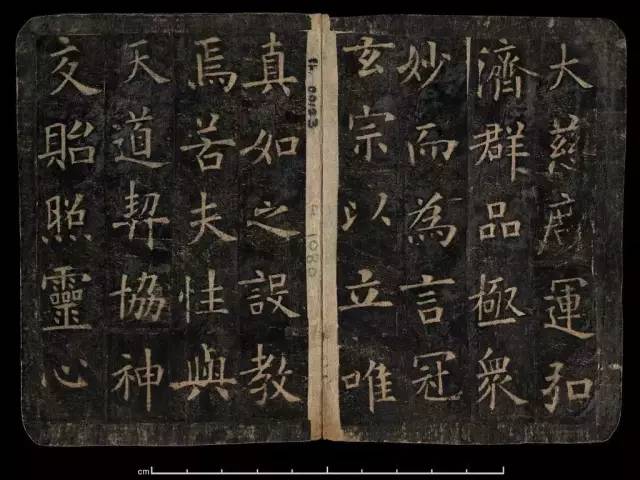 大慈運弘
濟群品極眾
妙而為言冠
玄宗以立唯
真如之設教
焉若夫性與
天道契協神
交貽照靈心
00123
1080
cm